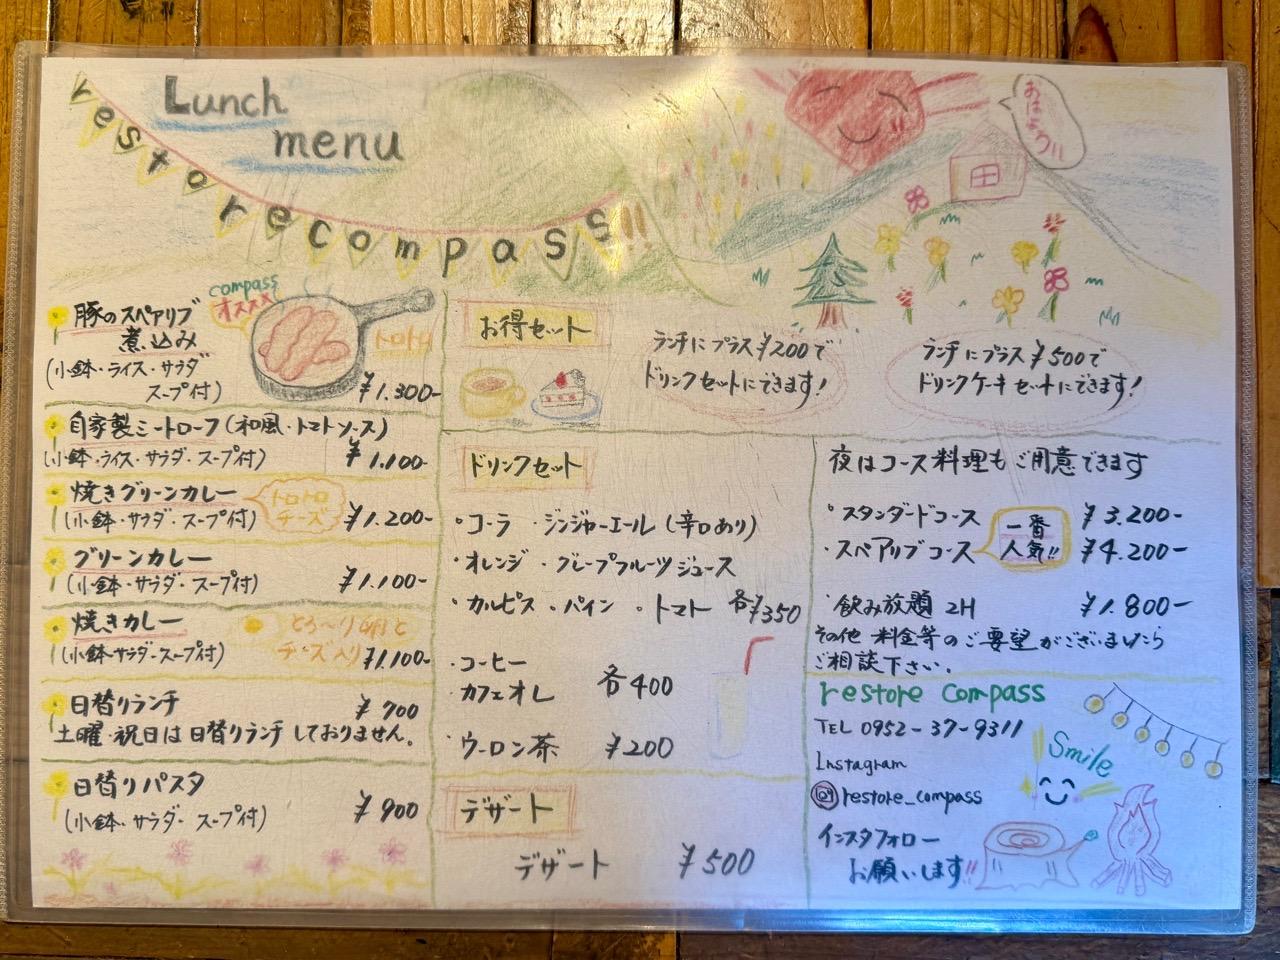 Lunch
menu
restore compass!!
おはよう!!
compass
オススメ
豚のスペアリブ
煮込み
トロトロ
(小鉢・ライス・サラダ
スープ付)
¥1.300-
自家製ミートローフ(和風・トマトソース)
(小鉢・ライス・サラダ・スープ付)
¥1.100-
焼きグリーンカレー
トロトロ
チーズ
(小鉢・サラダ・スープ付)
¥1.200-
グリーンカレー
(小鉢・サラダ・スープ付)
¥1.100-
焼きカレー
とろ〜り卵と
チーズ入り
(小鉢・サラダ・スープ付)
¥1.100-
日替りランチ
¥700
土曜・祝日は日替りランチしておりません。
日替りパスタ
(小鉢・サラダ・スープ付)
¥900
お得セット
ランチにプラス¥200で
ドリンクセットにできます!
ランチにプラス¥500で
ドリンクケーキセットにできます!
ドリンクセット
・コーラ ・ジンジャーエール(辛口あり)
・オレンジ ・グレープフルーツジュース
・カルピス ・パイン ・トマト 各¥350
・コーヒー
・カフェオレ
各400
・ウーロン茶 ¥200
デザート
デザート ¥500
夜はコース料理もご用意できます
・スタンダードコース ¥3.200-
・スペアリブコース ¥4.200-
一番
人気!!
・飲み放題 2H ¥1.800-
その他 料金等のご要望がございましたら
ご相談下さい。
restore compass
TEL 0952-37-9311
Instagram
restore_compass
インスタフォロー
お願いします!!
Smile